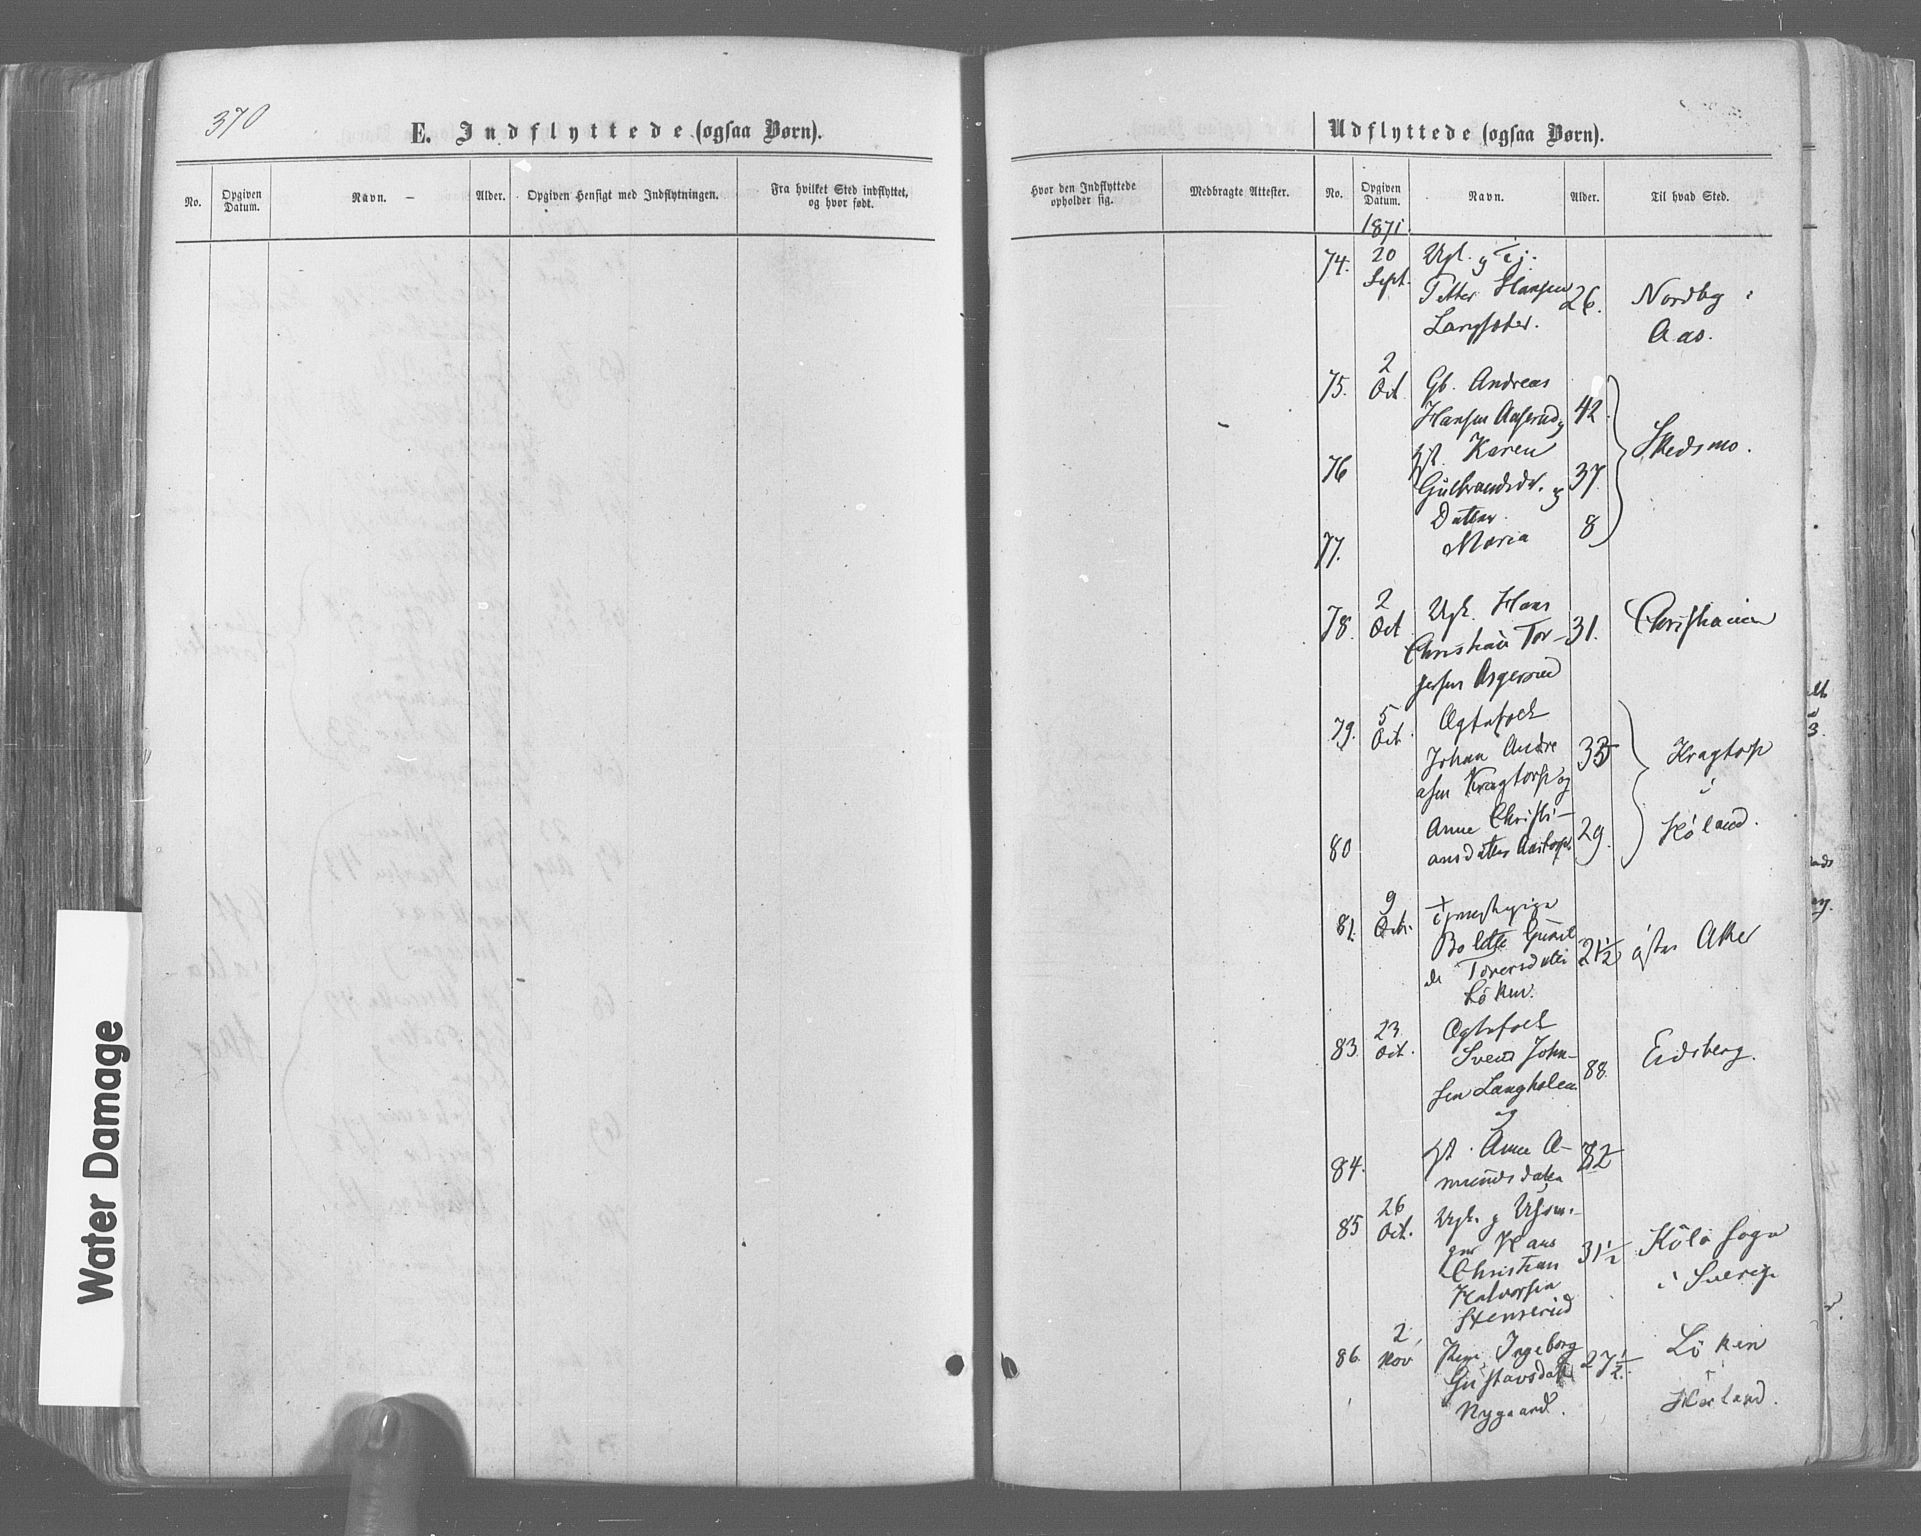 370
E. Indflyttede (ogsaa Børn).
No.
Opgiven Datum.
Navn.
Alder.
Opgiven Hensigt med Indflytningen.
Fra hvilket Sted indflyttet, og hvor født.
Udflyttede (ogsaa Børn).
Hvor den Indflyttede opholder sig.
Medbragte Attester.
No.
Opgiven Datum.
Navn.
Alder.
Til hvad Sted.
1871.
74. 20 Ugk. g Tj.
Sept. Petter Hansen 26. Nordby i
Aas.
2
75. Oct Gb. Andreas
Hansen Aaserud g 42
76 Hst. Karen Skedsmo.
Gulbrandsdr. g 37
Datter 8
77. Maria
2
78. Oct Ugk. Hans
Christian Tor- 31. Christiania
gersen Asgerrud
79. 5 Ægtefolk
Oct. Johan Andre 33 Kragtorp
asen Kragtorp og i
80 Anne Christi- 29. Høland.
ansdatter
9
81. Oct. Tjenestepige
Bolette Gunil 21½ Aker
de
Löken.
23 Ægtefolk
83. Oct. Svend John- Eidsberg.
sen Langholen 88.
og
84. Hst. Anne A- 82
mundsdatter
26
85 Oct. Ugk. g
Hans 31½ Kôla Sogn
Christian i Sverig
Halvorsen
Stenserud
2
86. Nov Pige Ingeborg 27½ Löken
Gustavsdatt i
Nygaard. Høland.
Water Damage